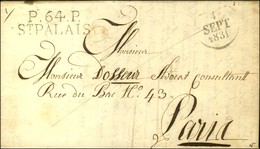 P. 64. P.
ST PALAIS
SEPT
1831
Monsieur
Monsieur Dossour Avocat Consultant
Rue du Bac No. 43.
Paris